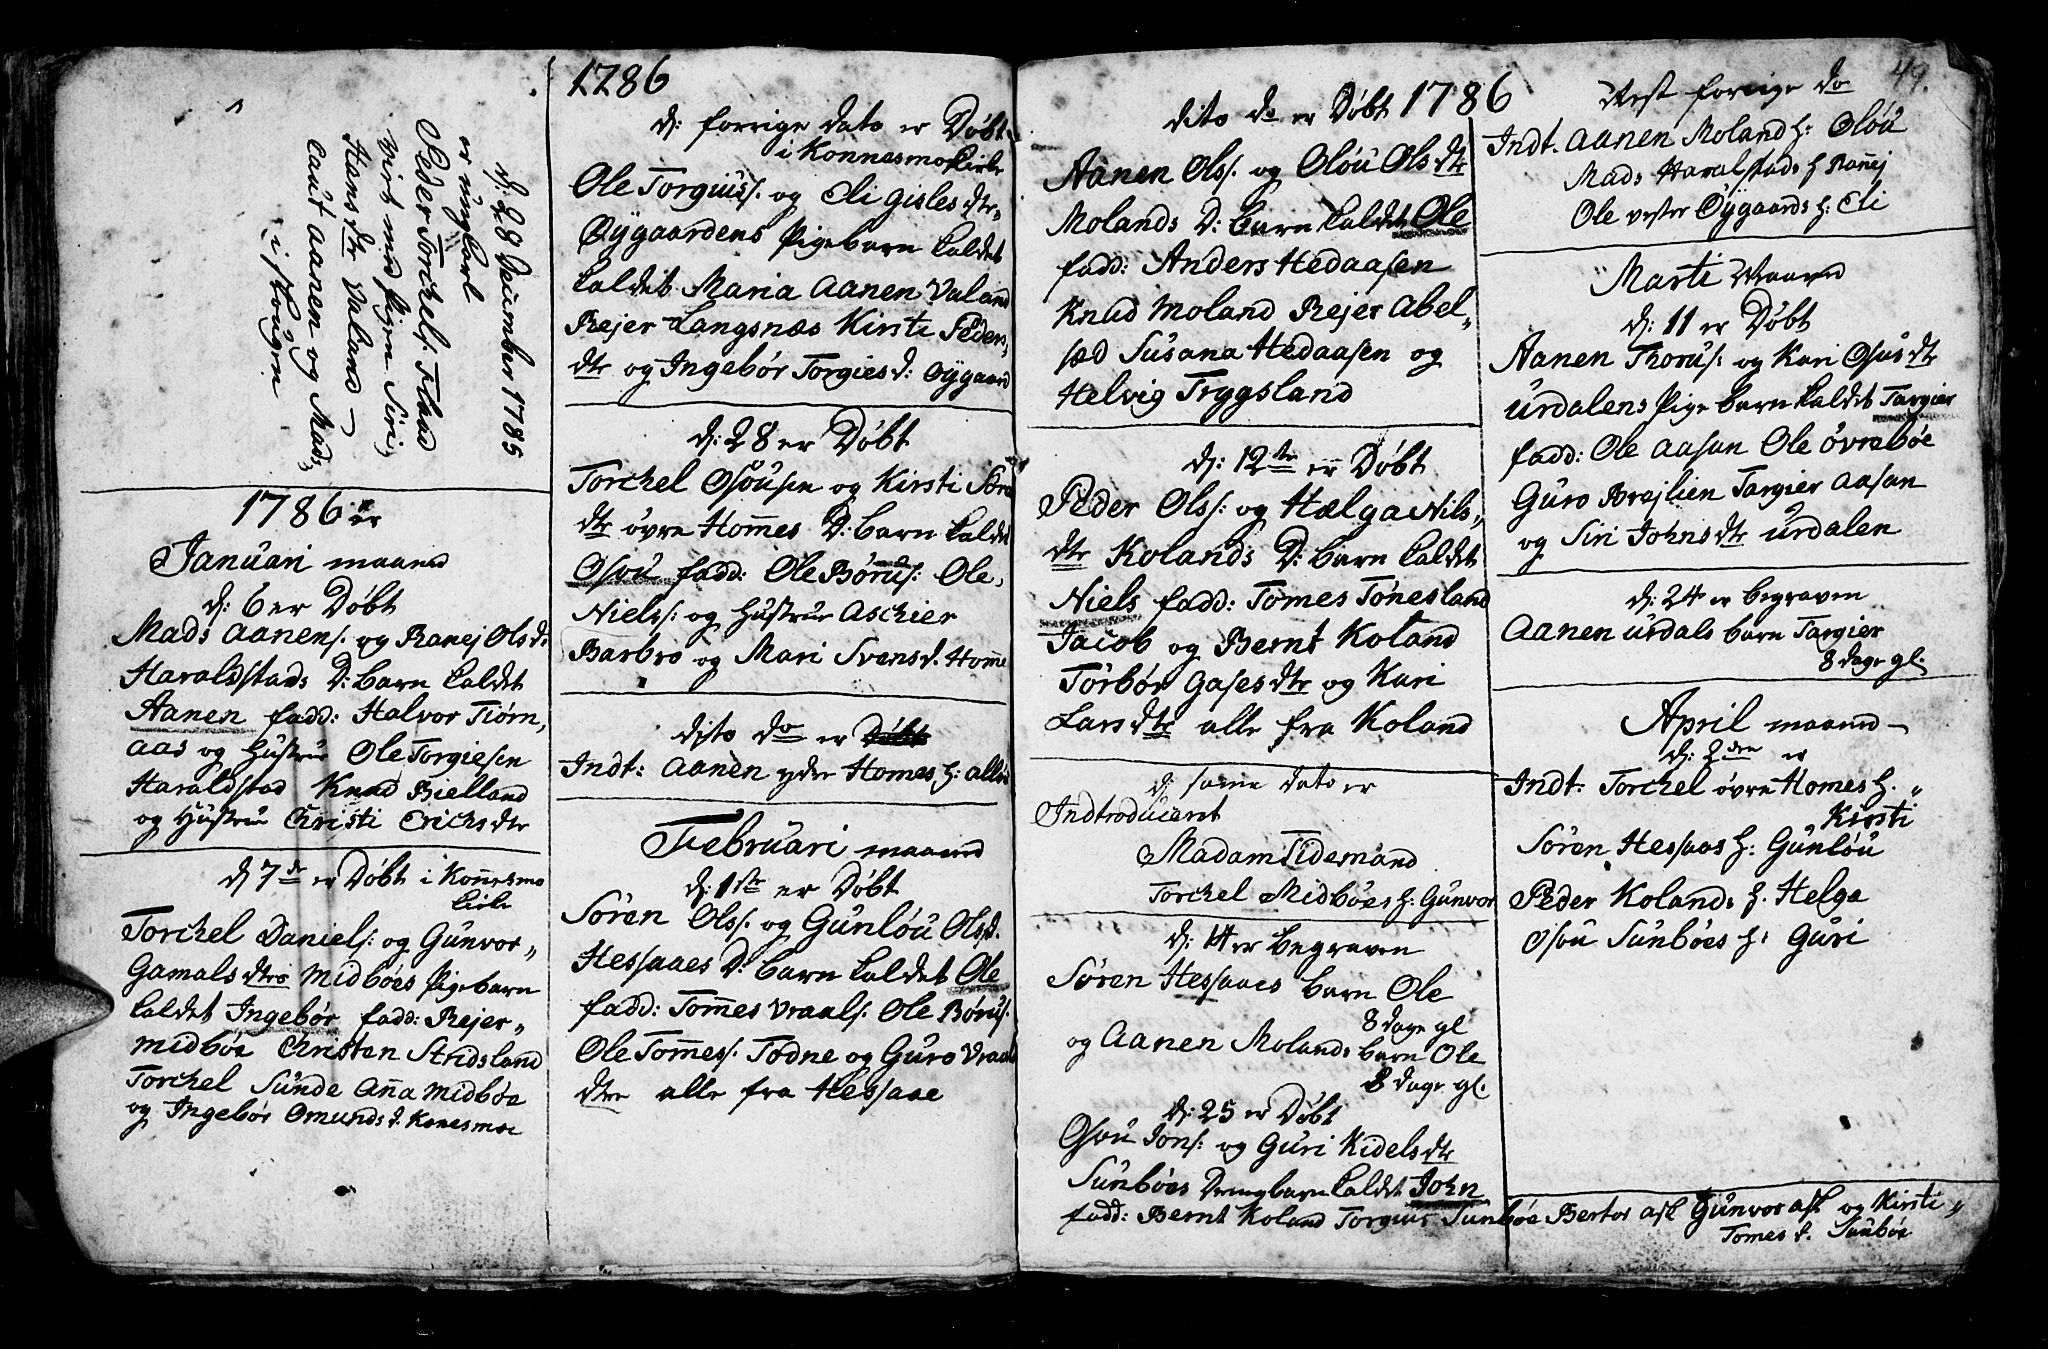 d: 28 December 1785
er ungkarl
Peder Torchels: Flaad
viet med pigen Siri
Hans dtr Valand
caut Aanen og Mads
i skougen
1786 er
Januari maaned
d: 6 er Døbt
Mads Aanens: og Ranej Ols dr
Haraldstads D: barn kaldet
Aanen fadd: Halvor Tiørn,,
aas og Hustrue Ole Torgiesen
Haraldstad Knud Bielland
og Hustrue Christi Erichs dtr
d 7de er Døbt i Konnesmo
kirke
Torchel Daniels: og Gunvor,,
Gamals dtrs Midbøes Pigebarn
kaldet Ingebør fadd: Rejer,,
midbøe Christen Stridsland
Torchel Sunde Anna Midbøe
og Ingebør Omunds d. Konesmoe
1786
d: forrige dato er Døbt
i Konnesmo kirke
Ole Torgiuss: og Eli Gisles dtr,,
Øygaardens Pigebarn kaldet
kaldet Maria Aanen Valand
Rejer Langsnæs Kirsti Peders,,
dtr og Ingebør Torgies d: Øygaard
d: 28 er Døbt
Torchel Osousen og Kirsti Søre
dtr øvre Hommes D: barn kaldet
Osou fadd: Ole Børus: Ole,
Niels: og Hustrue Aschier
Barbro og Mari Svens d. Homme
dito do er Døbt
Indt: Aanen ydre Homes h: allou
Februari maaned
d: 1ste er Døbt
Søren Ols: og Gunlou Ols d.
Hessaaes D: barn kaldet Ole
fadd: Tommes Vraals: Ole Børus:
Ole Tommes: Todne og Guro Vraals
dtr alle fra Hessaae
dito do er Døbt 1786
Aanen Ols: og Olou Ols dtr
Molands D: barn kaldet Ole
fadd: Anders Hedaasen
Knud Moland Rejer Abel,,
sæd Susana Hedaasen og
Helvig Tryggsland
d: 12te er Døbt
Peder Ols: og Hælga Nils,,
dtr Kolands D: barn kaldet
Niels fadd: Tomes Tønesland
Jacob og Bernt Koland
Torbør Gases dtr og Kari
Lars dtr alle fra Koland
d: same dato er
Indtroduceret
Madam Tidemand
Torchel Midbøes h: Gunvor
d: 14 er begraven
Søren Hessaaes barn Ole
8 dage gl
og Aanen Molands barn Ole
8 dage gl.
d: 25 er Døbt
Osou Jons: og Guri Kidels dtr
Sunbøes Drengbarn kaldet John
fadd: Bernt Koland Torgius Sunbøe Bertor Ask Gunvor Ask og Kirsti,,
Tomes d. Sunbøe
49.
Rest forrige do
Indt. Aanen Moland h: Olou
Mads Haralstads h Ranej
Ole vester Øygaards h: Eli
Marti Maaned
d: 11 er Døbt
Aanen Thorus: og Kari Osus dtr
Urdalens Pige barn kaldet Targier
fadd: Ole Aasan Ole øvrebøe
Guro Brejlien Targier Aasan
og Siri Johns dtr Urdalen
d: 24 er begraven
Aanen Urdals barn Targier
8 dage gl.
April maaned
d: 2den er
Indt: Torchel øvre Homes h.,,
Kirsti
Søren Hessaas h: Gunlou
Peder Kolands h. Helga
Osou Sunbøes h: Guri